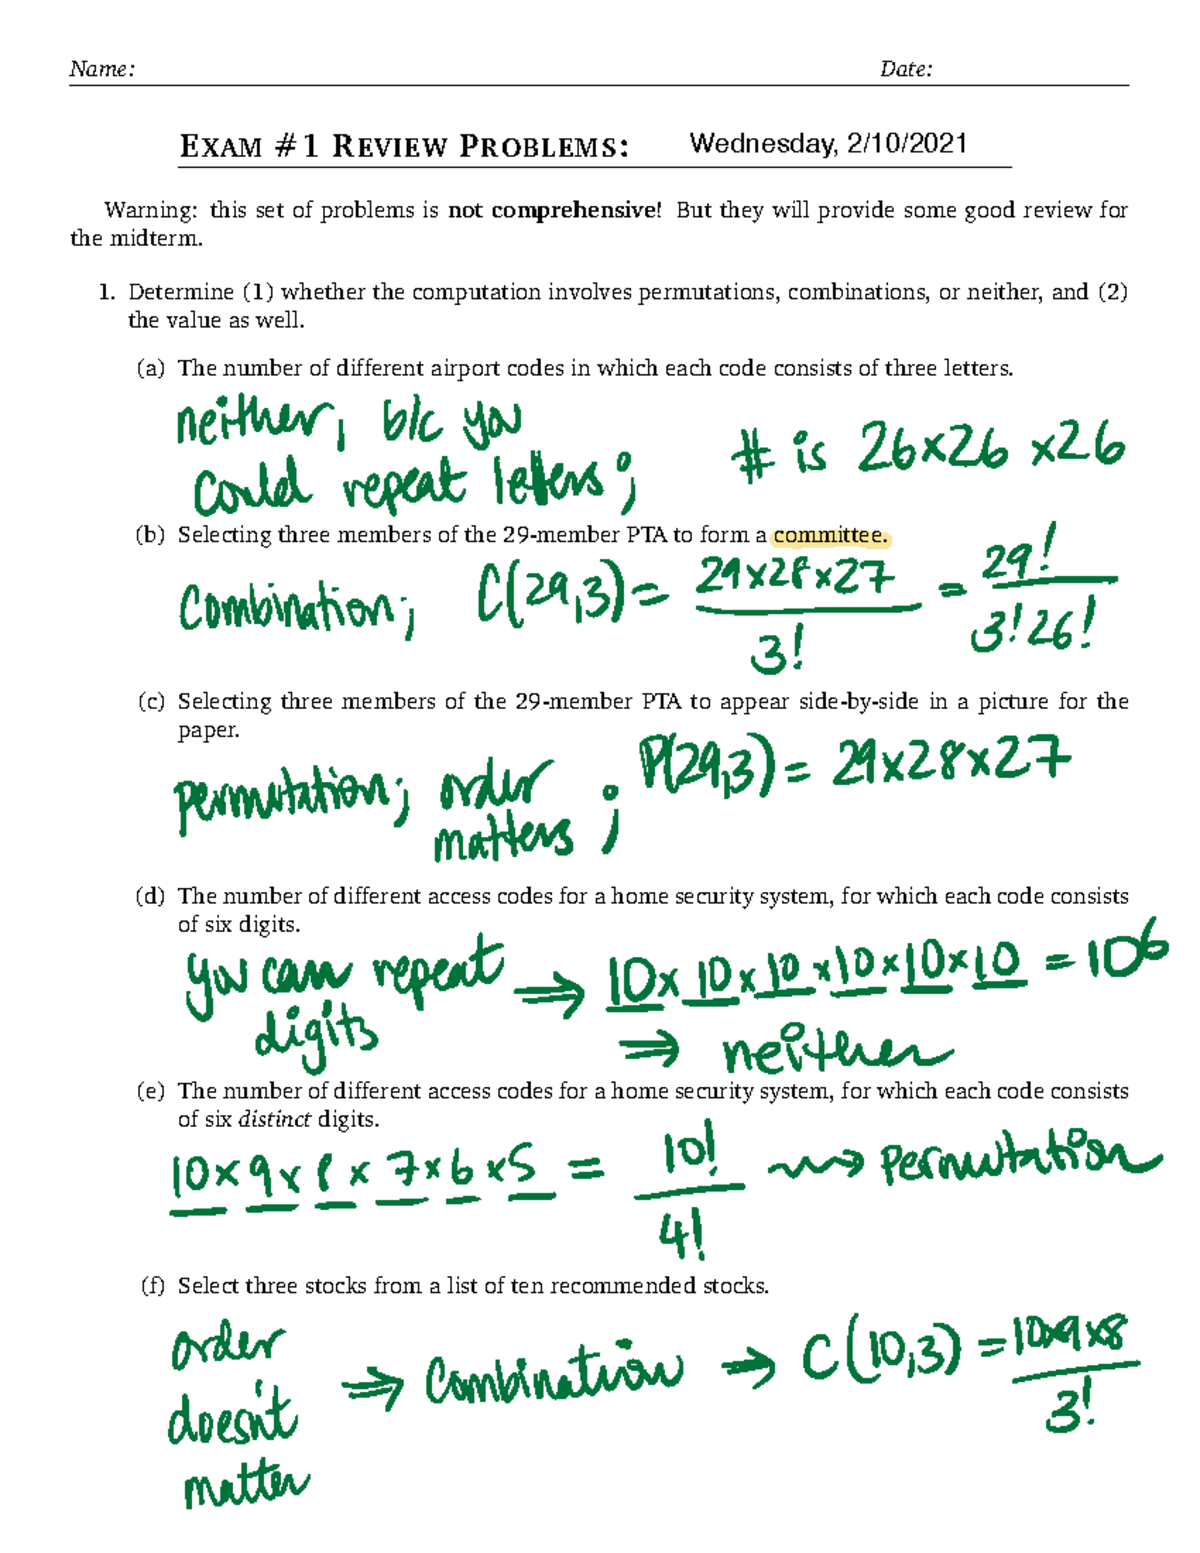 Name: Date:
EXAM #1 REVIEW PROBLEMS: Wednesday, 2/10/2021
Warning: this set of problems is not comprehensive! But they will provide some good review for
the midterm.
1. Determine (1) whether the computation involves permutations, combinations, or neither, and (2)
the value as well.
(a) The number of different airport codes in which each code consists of three letters.
neither, b/c you
could repeat letters; # is 26×26×26
(b) Selecting three members of the 29-member PTA to form a committee.
Combination; C(29,3) = 29×28×27 / 3! = 29! / 3!26!
(c) Selecting three members of the 29-member PTA to appear side-by-side in a picture for the
paper.
permutation; order
matters; P(29,3) = 29×28×27
(d) The number of different access codes for a home security system, for which each code consists
of six digits.
you can repeat
digits ⇒ 10×10×10×10×10×10 = 10⁶
⇒ neither
(e) The number of different access codes for a home security system, for which each code consists
of six distinct digits.
10×9×8×7×6×5 = 10! / 4! ⇝ permutation
(f) Select three stocks from a list of ten recommended stocks.
order
doesn't
matter ⇒ Combination → C(10,3) = 10×9×8 / 3!